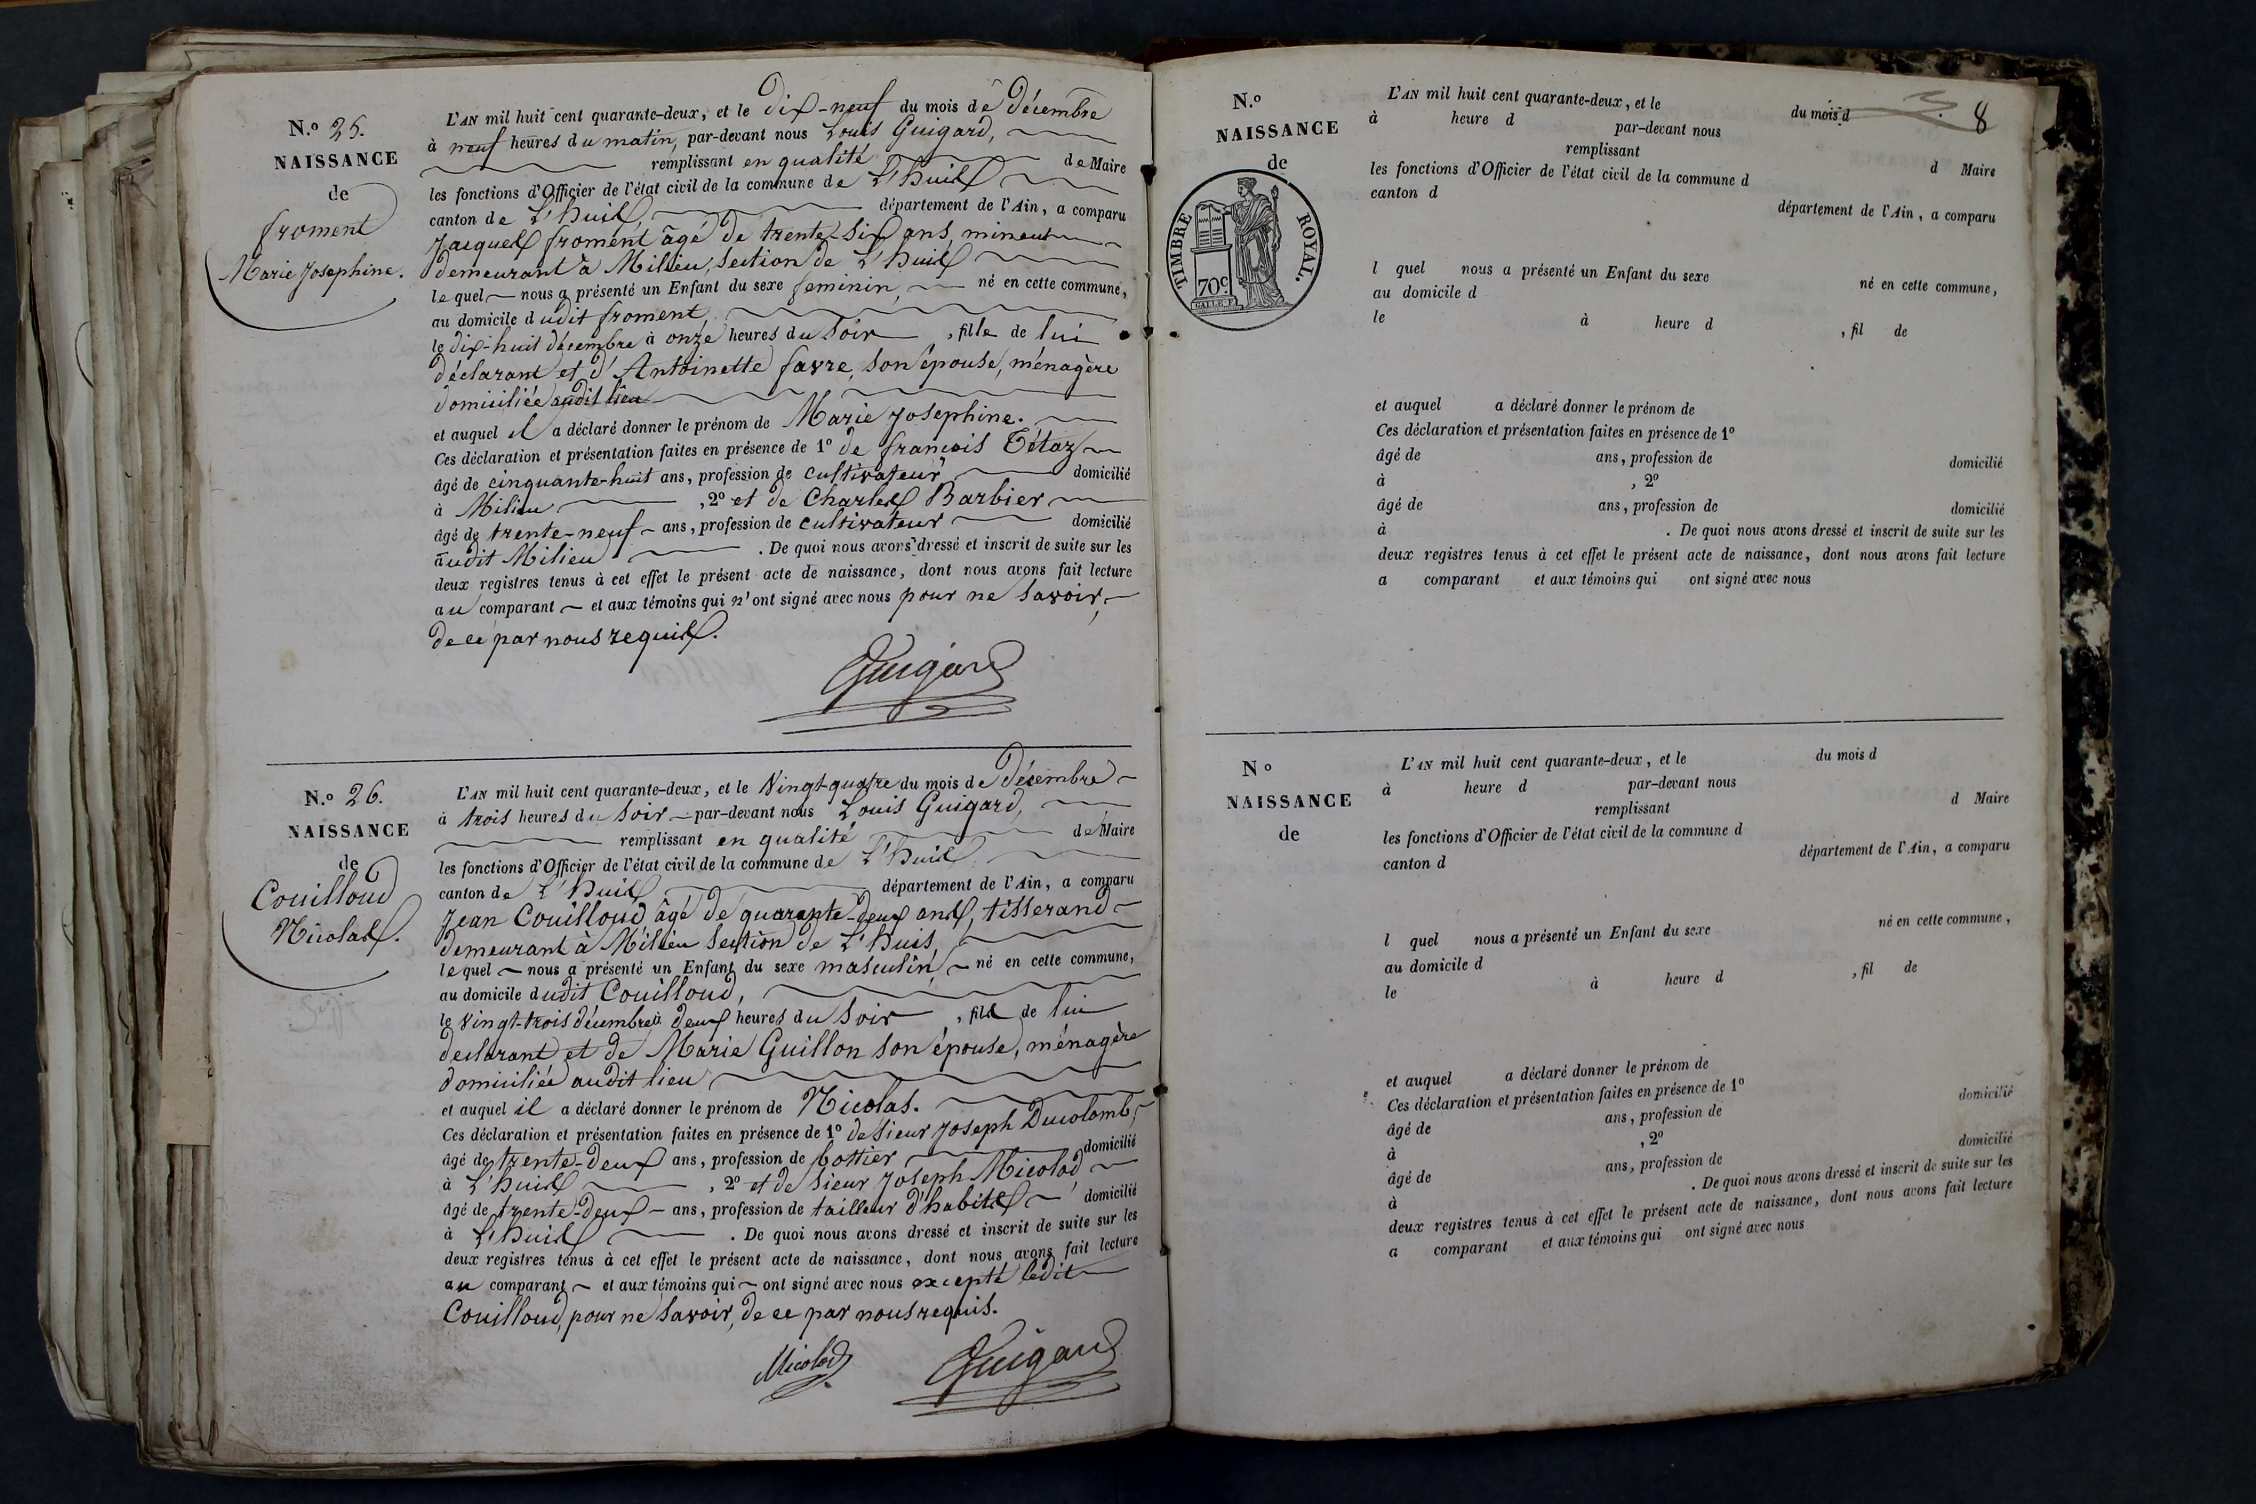 N.º 25.
NAISSANCE
de
froment
Marie Josephine.
L'AN mil huit cent quarante-deux, et le dix-neuf du mois de Décembre
à neuf heures du matin, par-devant nous Louis Guigard,
remplissant en qualité de Maire
les fonctions d'Officier de l'état civil de la commune de L'huis
canton de L'huis, département de l'Ain, a comparu
Jacques froment âgé de trente-six ans, mineur
demeurant à Milieu, section de L'huis
lequel nous a présenté un Enfant du sexe feminin, né en cette commune,
au domicile dudit froment,
le dix-huit décembre à onze heures du soir, fille de lui
déclarant et d'Antoinette favre, son épouse, ménagère
domiciliée audit lieu
et auquel il a déclaré donner le prénom de Marie Josephine.
Ces déclaration et présentation faites en présence de 1º de francois Tétaz
âgé de cinquante-huit ans, profession de cultivateur domicilié
à Milieu, 2º et de Charles Barbier
âgé de trente-neuf ans, profession de cultivateur domicilié
audit Milieu. De quoi nous avons dressé et inscrit de suite sur les
deux registres tenus à cet effet le présent acte de naissance, dont nous avons fait lecture
au comparant et aux témoins qui n'ont signé avec nous pour ne savoir,
de ce par nous requis.
Guigard
N.º 26.
NAISSANCE
de
Couilloud
Nicolas.
L'AN mil huit cent quarante-deux, et le Vingt-quatre du mois de Décembre
à trois heures du soir par-devant nous Louis Guigard,
remplissant en qualité de Maire
les fonctions d'Officier de l'état civil de la commune de L'huis
canton de L'huis département de l'Ain, a comparu
Jean Couilloud âgé de quarante-deux ans, tisserand
demeurant à Milieu section de L'huis,
lequel nous a présenté un Enfant du sexe masculin, né en cette commune,
au domicile dudit Couilloud,
le vingt-trois décembre à deux heures du soir, fils de lui
déclarant et de Marie Guillon son épouse, ménagère
domiciliée audit lieu
et auquel il a déclaré donner le prénom de Nicolas.
Ces déclaration et présentation faites en présence de 1º de sieur Joseph Ducolomb,
âgé de trente-deux ans, profession de bottier domicilié
à L'huis, 2º et de sieur Joseph Micolod
âgé de trente-deux ans, profession de tailleur d'habits domicilié
à L'huis. De quoi nous avons dressé et inscrit de suite sur les
deux registres tenus à cet effet le présent acte de naissance, dont nous avons fait lecture
au comparant et aux témoins qui ont signé avec nous excepté ledit
Couilloud, pour ne savoir, de ce par nous requis.
Micolod Guigard
8
N.º
NAISSANCE
de
TIMBRE ROYAL.
70c.
L'AN mil huit cent quarante-deux, et le du mois d
à heure d par-devant nous
remplissant d Maire
les fonctions d'Officier de l'état civil de la commune d
canton d département de l'Ain, a comparu
l quel nous a présenté un Enfant du sexe né en cette commune,
au domicile d
le à heure d , fil de
et auquel a déclaré donner le prénom de
Ces déclaration et présentation faites en présence de 1º
âgé de ans, profession de domicilié
à , 2º
âgé de ans, profession de domicilié
à . De quoi nous avons dressé et inscrit de suite sur les
deux registres tenus à cet effet le présent acte de naissance, dont nous avons fait lecture
a comparant et aux témoins qui ont signé avec nous
Nº
NAISSANCE
de
L'AN mil huit cent quarante-deux, et le du mois d
à heure d par-devant nous
remplissant d Maire
les fonctions d'Officier de l'état civil de la commune d
canton d département de l'Ain, a comparu
l quel nous a présenté un Enfant du sexe né en cette commune,
au domicile d
le à heure d , fil de
et auquel a déclaré donner le prénom de
Ces déclaration et présentation faites en présence de 1º
âgé de ans, profession de domicilié
à , 2º
âgé de ans, profession de domicilié
à . De quoi nous avons dressé et inscrit de suite sur les
deux registres tenus à cet effet le présent acte de naissance, dont nous avons fait lecture
a comparant et aux témoins qui ont signé avec nous